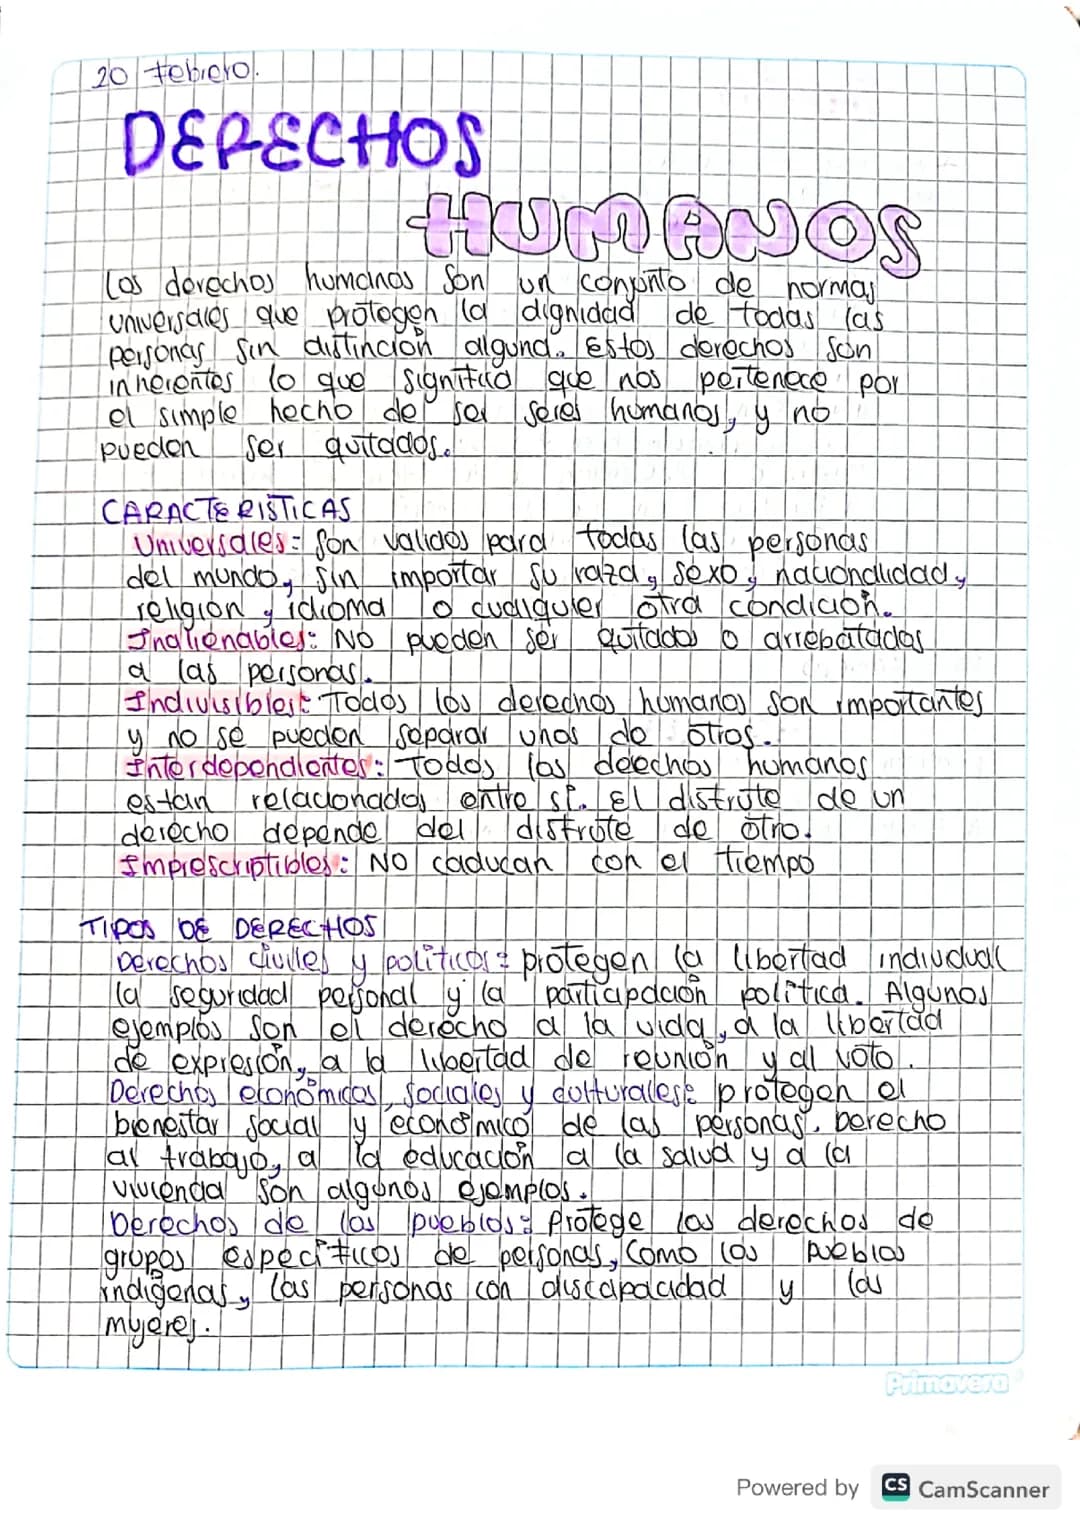 20 febrero.
DERECHOS
HUMANOS
Los derechos humanos son un conjunto de normas
universales que protegen la dignidad de todas las
personas sin distinción alguna. Estos derechos son
inherentes lo que significa que nos pertenece por
el simple hecho de ser seres humanos, y no
pueden ser quitados.
CARACTERISTICAS
Universales: Son validos para todas las personas
del mundo, sin importar su raza, sexo, nacionalidad,
religion, idioma o cualquier otra condición.
Inalienables: No pueden ser quitados o arrebatadas
a las personas.
Indivisibles: Todos los derechos humanos son importantes
y no se pueden separar unos de otros.
Interdependientes: Todos los deechos humanos
estan relacionados entre sí. El disfrute de un
derecho depende del disfrute de otro.
Imprescriptibles: No caducan con el tiempo
TIPOS DE DERECHOS
Derechos civiles y politicos: protegen la libertad individual
la seguridad personal y la participación política. Algunos
ejemplos son el derecho a la vida, a la libertad
de expresión, a la libertad de reunión y al voto.
Derechos económicos, sociales y culturales: protegen el
bienestar social y económico de las personas. Derecho
al trabajo, a la educación a la salud y a la
vivienda son algunos ejemplos.
Derechos de los pueblos: Protege los derechos de
grupos específicos de personas, como los pueblos
indígenas, las personas con discapacidad y las
mujeres.
Primavera
Powered by CS CamScanner